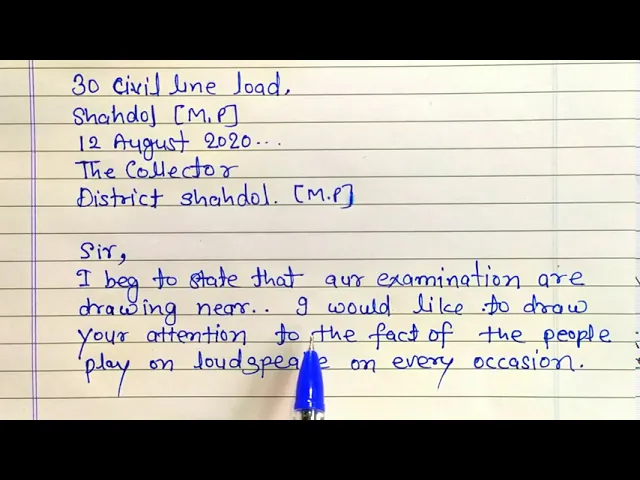 30 Civil line load,
Shahdol [M.P]
12 August 2020...
The Collector
District shahdol. [M.P]
Sir,
I beg to state that aur examination are
drawing near.. I would like to draw
your attention to the fact of the people
play on on every occasion.